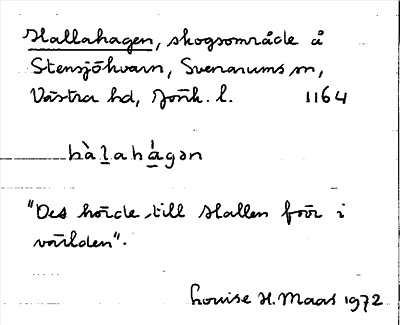 Hallahagen, skogsområde å
Stensjöhvarn, Svenarums sn,
Västra hd, Jönk. l. 1164
hàlahágən
"Des hörde till Hallen förr i
världen".
Louise H. Maas 1972